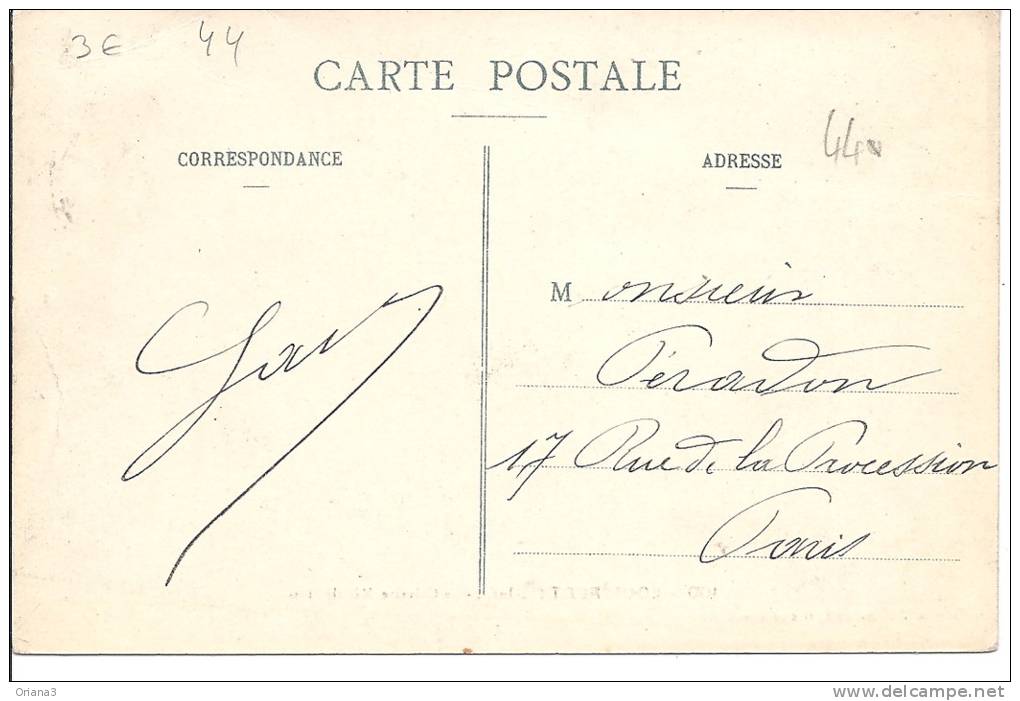 3€ 44
CARTE POSTALE
44
CORRESPONDANCE
ADRESSE
Monsieur
Péradon
17 Rue de la Procession
Paris
Oriana3
www.delcampe.net